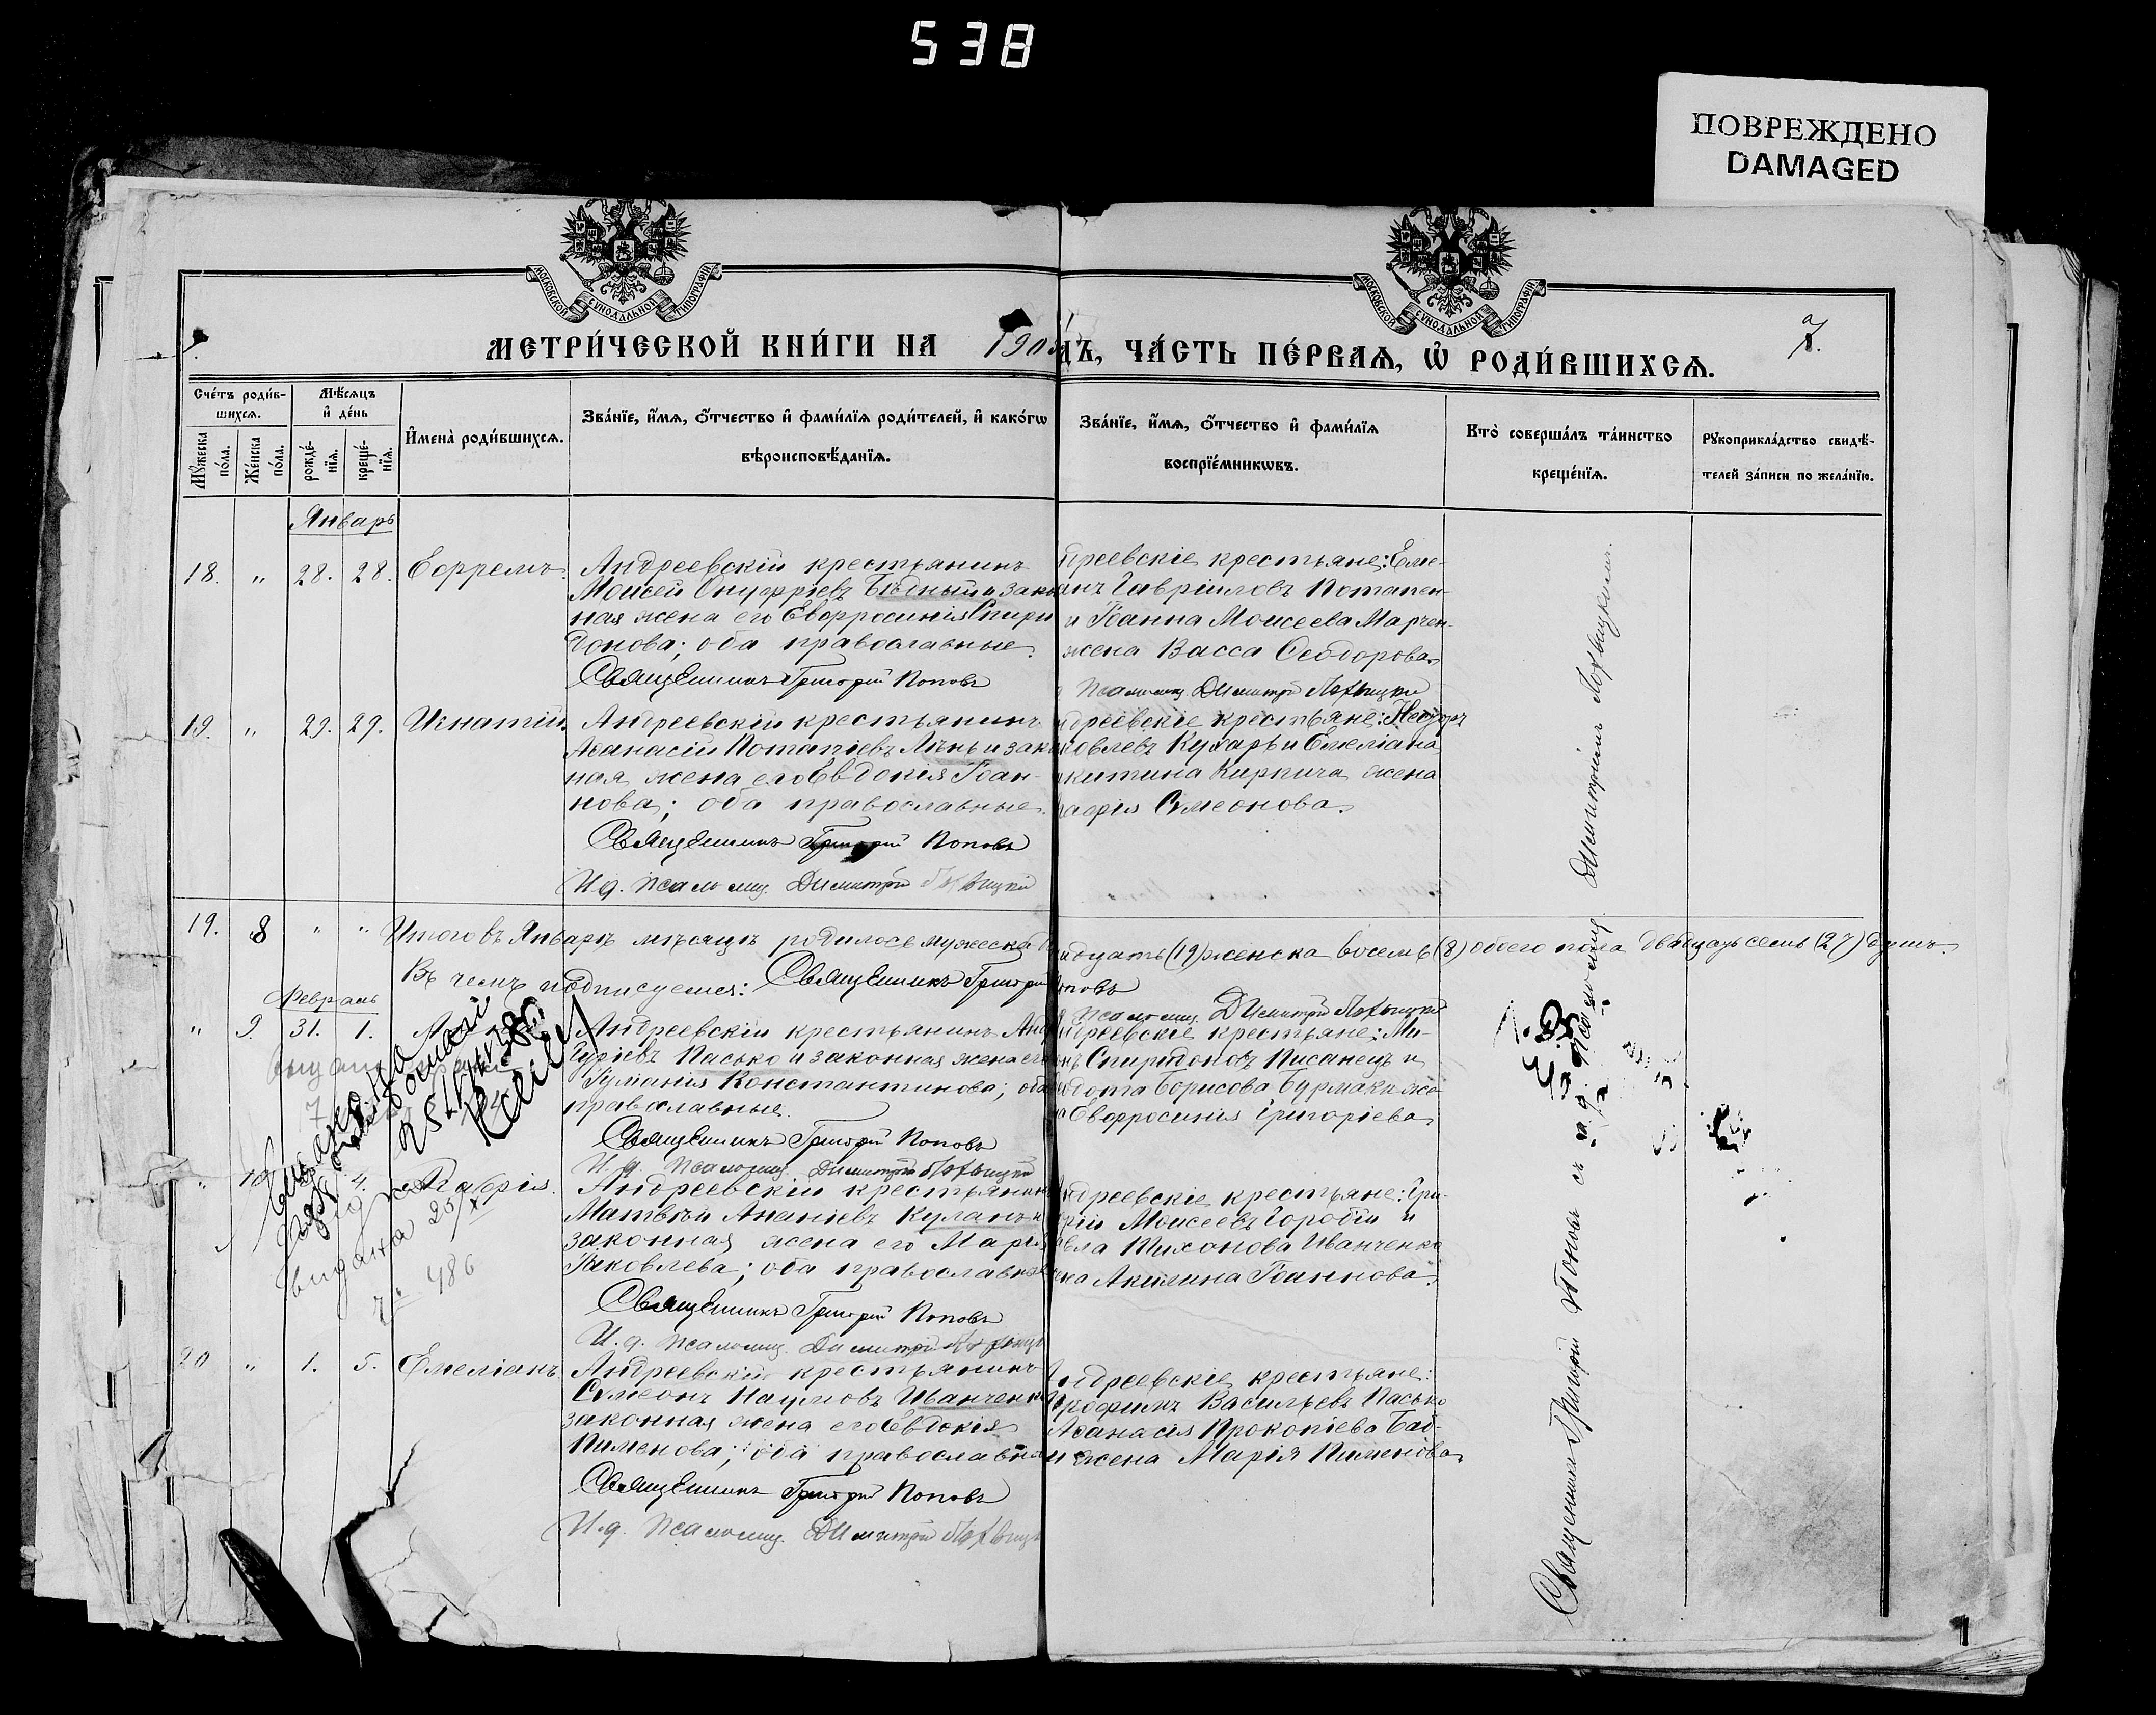 538
ПОВРЕЖДЕНО
DAMAGED
МОСКОВСКОЙ СѴНОДАЛЬНОЙ ТИПОГРАФІИ
МОСКОВСКОЙ СѴНОДАЛЬНОЙ ТИПОГРАФІИ
МЕТРИ́ЧЕСКОЙ КНИ́ГИ НА 190
ДЪ, ЧА́СТЬ ПЕ́РВАЯ, Ѿ РОДИ́ВШИХСЯ.
7.
Сче́тъ роди́в-
шихся.
Мѣ́сяцъ
и҆ де́нь
Мꙋ́жеска
по́ла.
Же́нска
по́ла.
рожде́-
нїя.
креще́-
нїя.
И҆мена̀ роди́вшихся.
Зва́нїе, и҆́мя, ѻ҆́тчество и҆ фами́лїя роди́телей, и҆ како́гѡ
вѣроисповѣ́данїя.
Зва́нїе, и҆́мя, ѻ҆́тчество и҆ фами́лїя
воспрїе́мникѡвъ.
Кто̀ соверша́лъ та́инство
креще́нїя.
Рꙋкоприкла́дство свидѣ́-
телей за́писи по жела́нїю.
Январь
18. " 28. 28. Ефремъ. Андреевскій крестьянинъ
Моисей Онуфріевъ Бѣдный и зако
ная жена его Евфросинія Спири
донова; оба православные.
Священникъ Григорій Поповъ
дреевскіе крестьяне: Еме-
анъ Гавріиловъ Потапен-
и Іоанна Моисеева Марчен-
жена Васса Ѳеодорова
Псаломщ. Димитрій Лохвицкій
19. " 29. 29. Игнатій. Андреевскій крестьянинъ
Аѳанасій Потапіевъ Лѣнь и зако
ная жена его Евдокія Іоан-
нова; оба православные.
Священникъ Григорій Поповъ
И.д. Псаломщ. Димитрій Лохвицкій
дреевскіе крестьяне:
ковлевъ Кухарь и Емеліана
китина Кирпича жена
Симеонова
19. 8 " " Итого въ Январѣ мѣсяцѣ родилось мужеска
надцать (19) женска восемь (8) обоего пола двадцать семь (27) душъ.
Въ чемъ подписуемся: Священникъ Григорій Поповъ
Псаломщ. Димитрій Лохвицкій
Февраль
" 9. 31. 1.
Андреевскій крестьянинъ
Гуріевъ Пасько и законная жена его
Константинова; оба
православные.
Священникъ Григорій Поповъ
И.д. Псаломщ. Димитрій Лохвицкій
дреевскіе крестьяне: Ми-
Спиридоновъ Писанецъ и
Борисова Бурмаки же-
Евфросинія Григоріева
" 10 4. Андреевскій крестьянинъ
Матвѣй Ананіевъ Куланъ и
законная жена его Марія
Яковлева; оба православны
Священникъ Григорій Поповъ
И.д. Псаломщ. Димитрій
дреевскіе крестьяне: Гри-
рій Моисеевъ Горобій и
вла Тихонова Иванченко
на Акилина Іоаннова.
выдана 25/X
486
20 " 1. 5. Емеліанъ. Андреевскій крестьянинъ
Симеонъ Наумовъ Иванченко
законная жена его Евдокія
Пименова; оба православны
Священникъ Григорій Поповъ
И.д. Псаломщ. Димитрій
дреевскіе крестьяне:
Трофимъ Васильевъ Пасько
Аѳанасія Прокопіева Баб-
жена Марія Пименова
Священникъ Григорій Поповъ съ и.д. Псаломщ. Димитріемъ Лохвицкимъ.
1